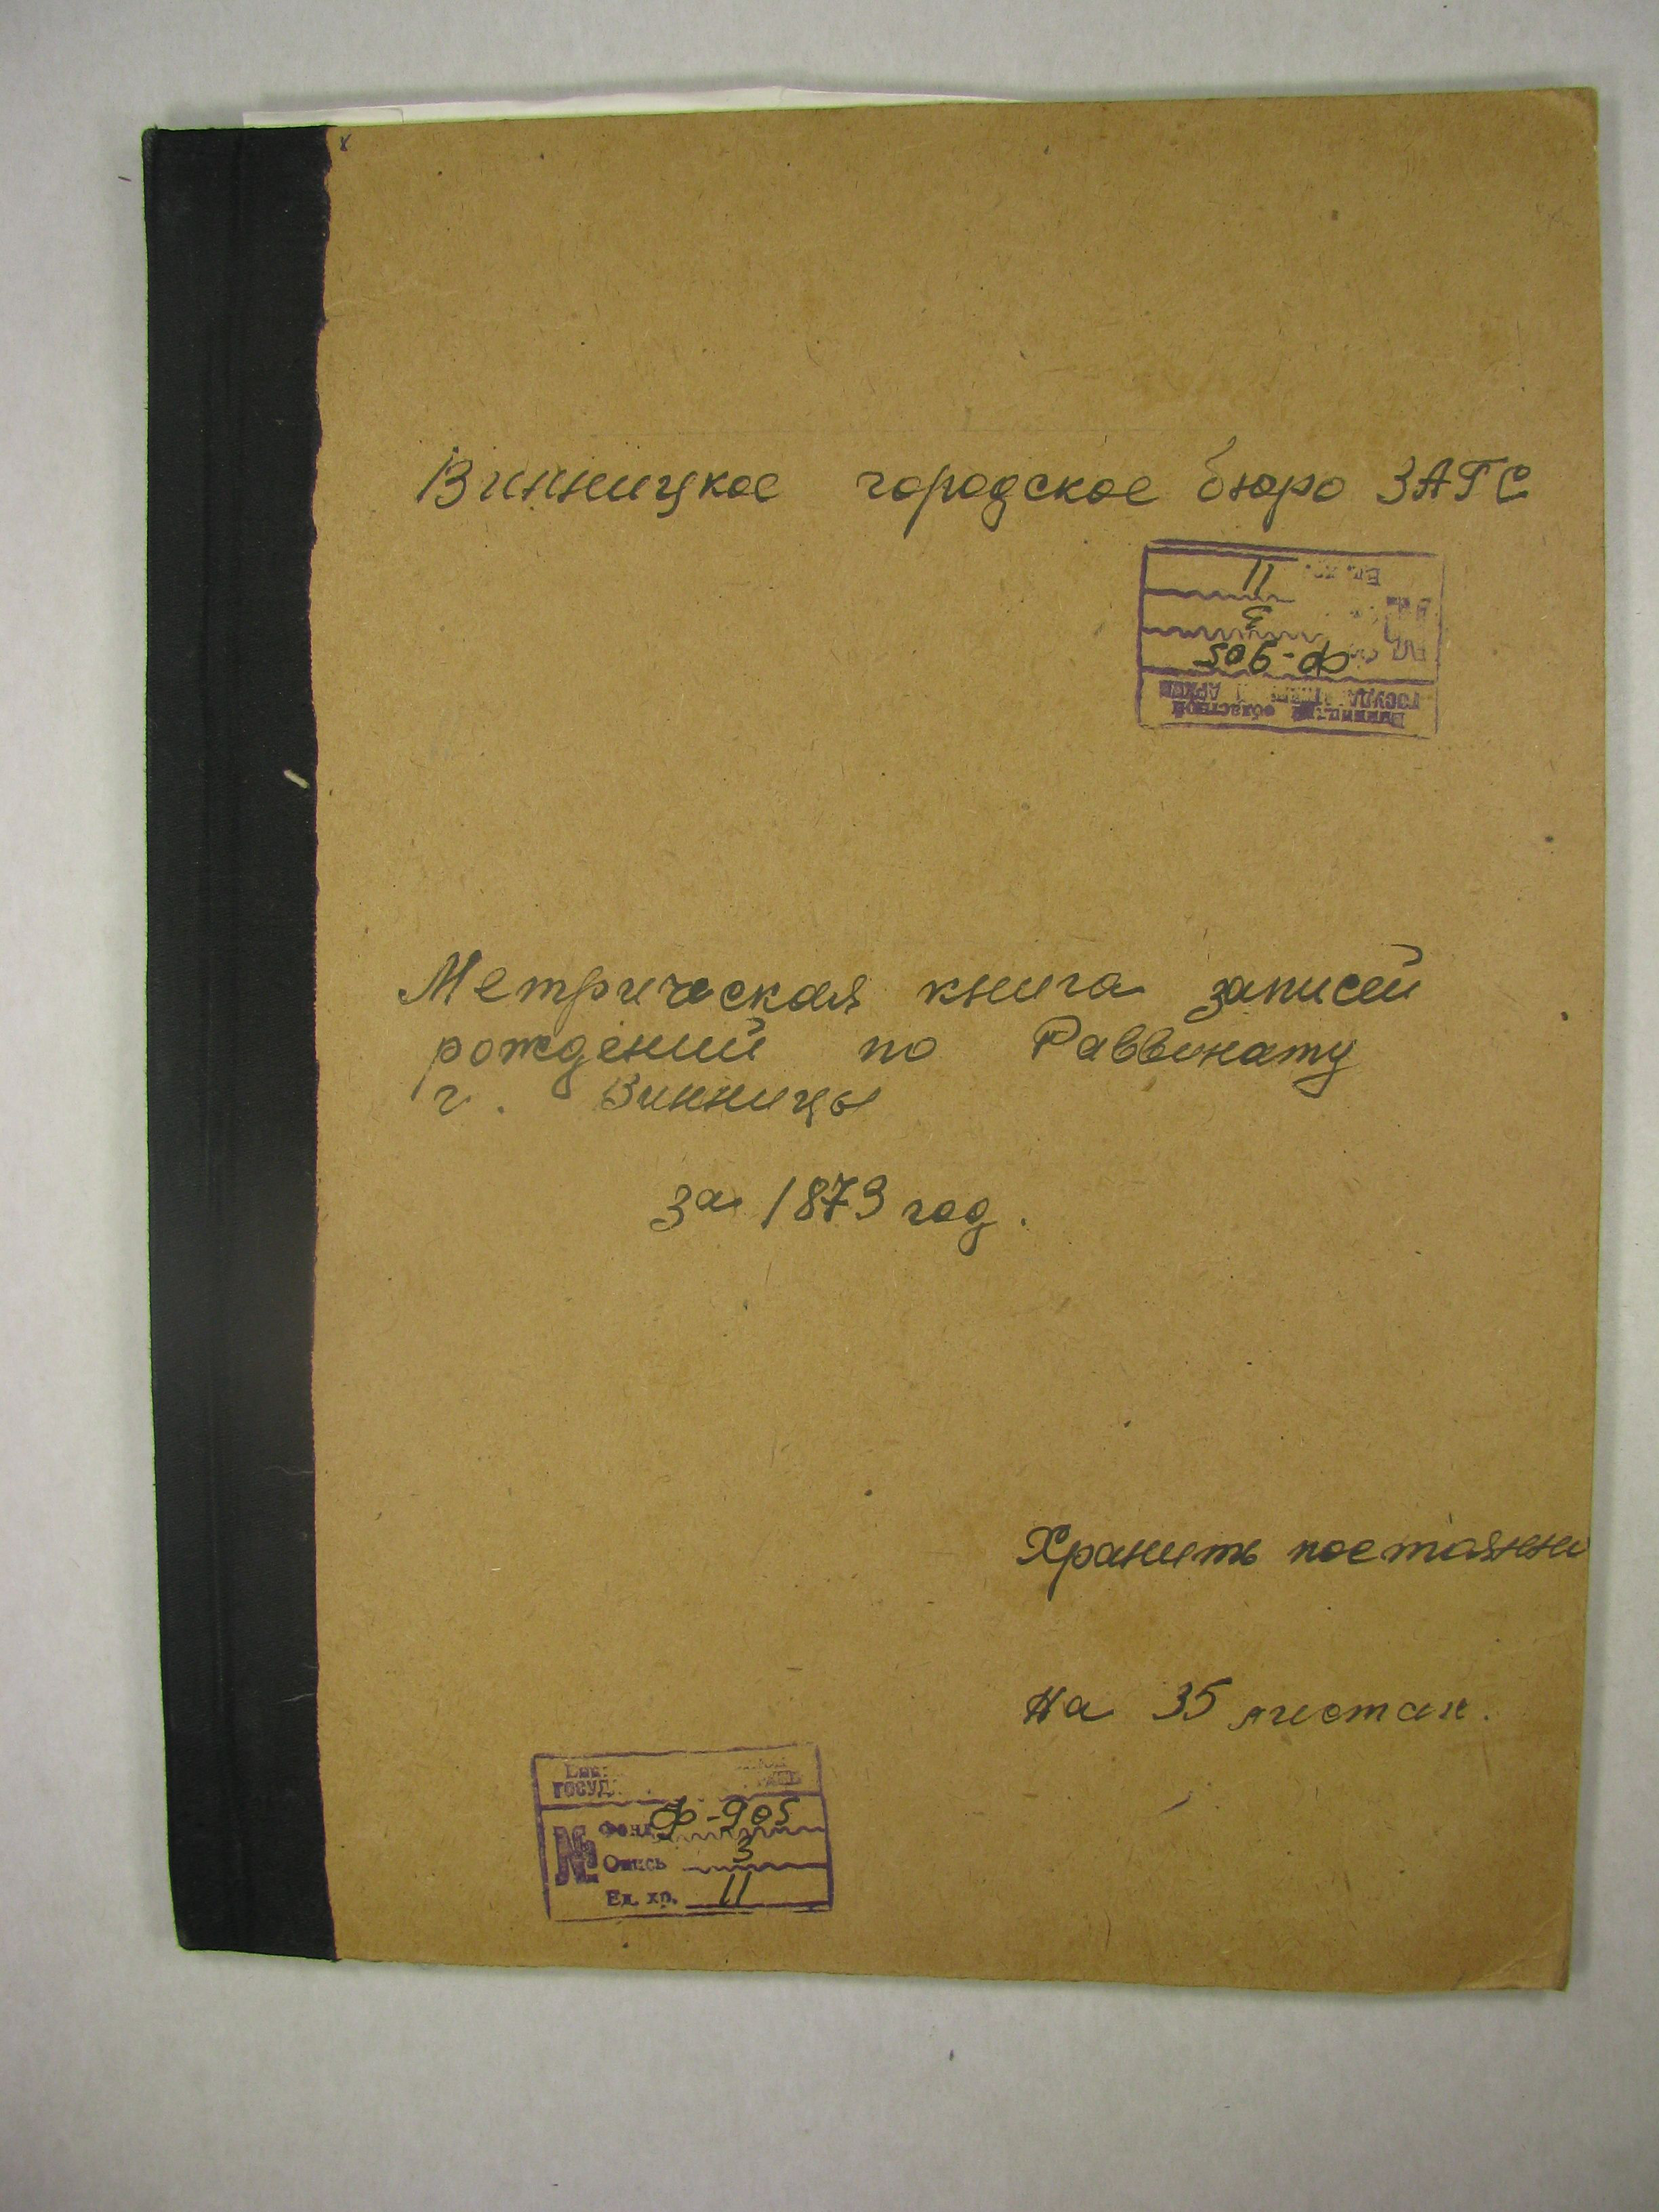 Винницкое городское бюро ЗАГС
Винницкий областной
ГОСУДА
Ф-905
3
Ед. хр. 11
Метрическая книга записей
рождений по Раввинату
г. Винницы
за 1873 год.
Хранить постоянно
На 35 листах.
ГОСУД
№ Фонд Ф-905
Опись 3
Ед. хр. 11